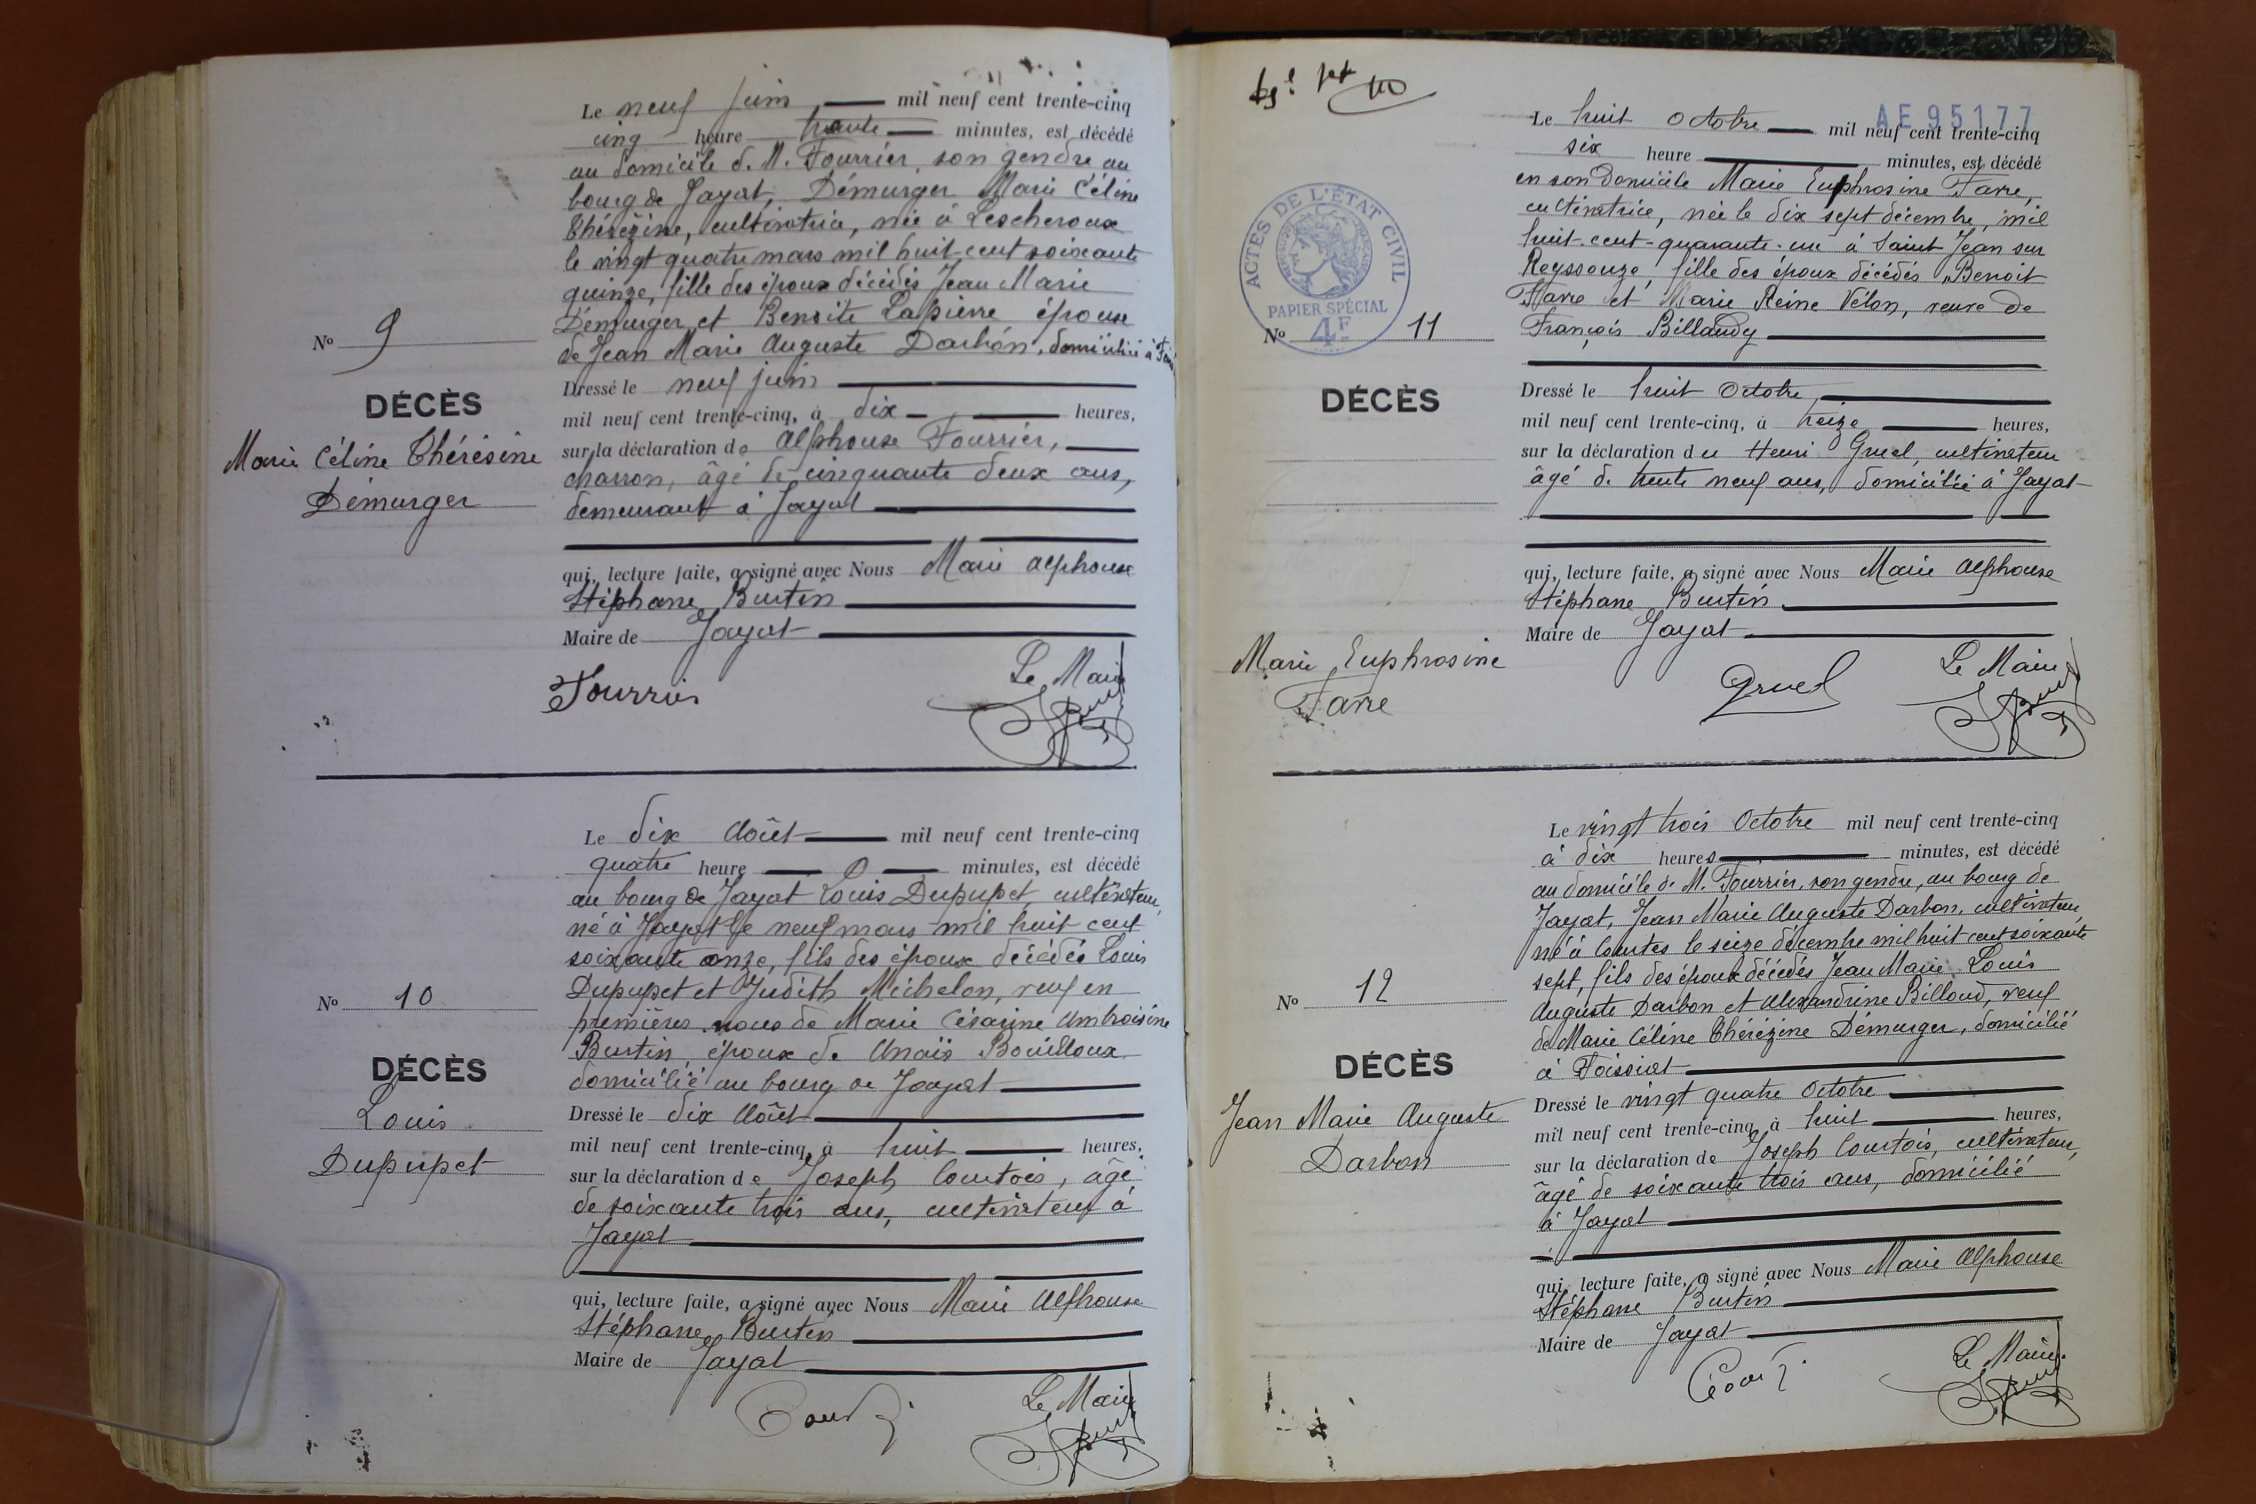 Le neuf juin mil neuf cent trente-cinq
cinq heure trente minutes, est décédé
au domicile de M. Fourrier, son gendre au
bourg de Jayat, Démurger Marie Céline
Thérèzine, cultivatrice, née à Lescheroux
le vingt quatre mars mil huit cent soixante
quinze, fille des époux décédés Jean Marie
Démurger et Benoite Lapierre épouse
de Jean Marie Auguste Darbon, domiciliée à
No 9
DÉCÈS
Marie Céline Thérésine
Démurger
Dressé le neuf juin
mil neuf cent trente-cinq, à dix heures,
sur la déclaration de Alphonse Fourrier,
charron, âgé de cinquante deux ans,
demeurant à Jayat
qui, lecture faite, a signé avec Nous Marie Alphonse
Stéphane Burtin
Maire de Jayat
Fourrier
Le Maire
Le dix Août mil neuf cent trente-cinq
quatre heure 0 minutes, est décédé
au bourg de Jayat Louis Dupupet, cultivateur,
né à Jayat le neuf mars mil huit cent
soixante onze, fils des époux décédés Louis
Dupupet et Judith Michelon, veuf en
premières noces de Marie Césarine Ambroisine
Burtin, époux de Anaïs Bouilloux
domicilié au bourg de Jayat
No 10
DÉCÈS
Louis
Dupupet
Dressé le dix Août
mil neuf cent trente-cinq, à huit heures,
sur la déclaration de Joseph Courtois, âgé
de soixante trois ans, cultivateur à
Jayat
qui, lecture faite, a signé avec Nous Marie Alphonse
Stéphane Burtin
Maire de Jayat
Le Maire
AE 95177
Le huit Octobre mil neuf cent trente-cinq
six heure minutes, est décédé
en son domicile Marie Euphrosine Favre,
cultivatrice, née le dix sept décembre, mil
huit-cent-quarante-un à Saint Jean sur
Reyssouze, fille des époux décédés Benoit
Favre et Marie Reine Vélon, veuve de
François Billaudy
ACTES DE L'ÉTAT CIVIL
PAPIER SPÉCIAL
4F
No 11
DÉCÈS
Marie Euphrosine
Favre
Dressé le huit Octobre,
mil neuf cent trente-cinq, à treize heures,
sur la déclaration de Henri Gruel, cultivateur
âgé de trente neuf ans, domicilié à Jayat
qui, lecture faite, a signé avec Nous Marie Alphonse
Stéphane Burtin
Maire de Jayat
Gruel
Le Maire
Le vingt trois Octobre mil neuf cent trente-cinq
à dix heures minutes, est décédé
au domicile de M. Fourrier, son gendre, au bourg de
Jayat, Jean Marie Auguste Darbon, cultivateur
né à Courtes le seize décembre mil huit cent soixante
sept, fils des époux décédés Jean Marie Louis
Auguste Darbon et Alexandrine Billoud, veuf
de Marie Céline Thérézine Démurger, domicilié
à Foissiat
No 12
DÉCÈS
Jean Marie Auguste
Darbon
Dressé le vingt quatre Octobre
mil neuf cent trente-cinq, à huit heures,
sur la déclaration de Joseph Courtois, cultivateur,
âgé de soixante trois ans, domicilié
à Jayat
qui, lecture faite, a signé avec Nous Marie Alphonse
Stéphane Burtin
Maire de Jayat
Le Maire